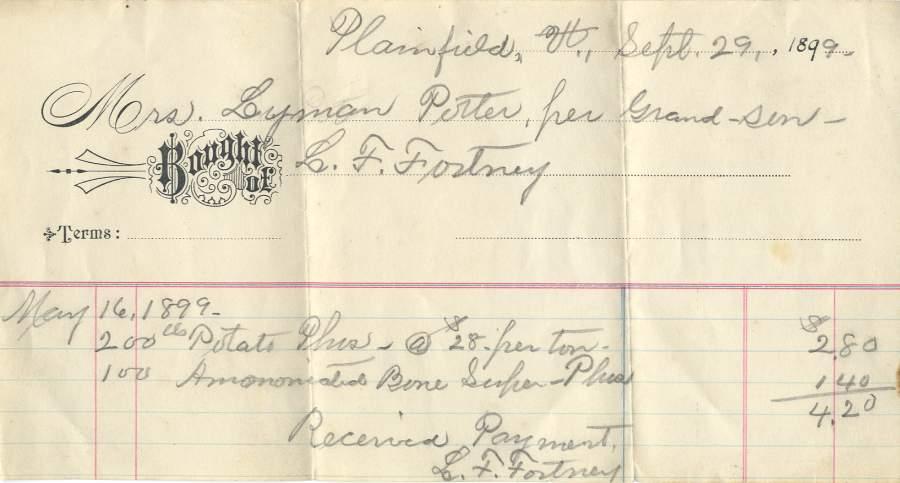 Plainfield, Vt., Sept. 29, 1899-
Mrs. Lyman Porter, per Grand-son-
Bought of L. F. Fortney
Terms:
May 16, 1899-
200 lbs Potato Phos- @ $28- per ton- $2.80
100 Amononiated Bone Super-Phos 1 40
4.20
Received Payment,
L. F. Fortney